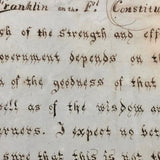 Franklin on the F! Constitu
gh of the strength and effi
overnment depends on th
n of the goodness of that
well as of the wisdom an
ernors. I expect no bet
sure that this is not